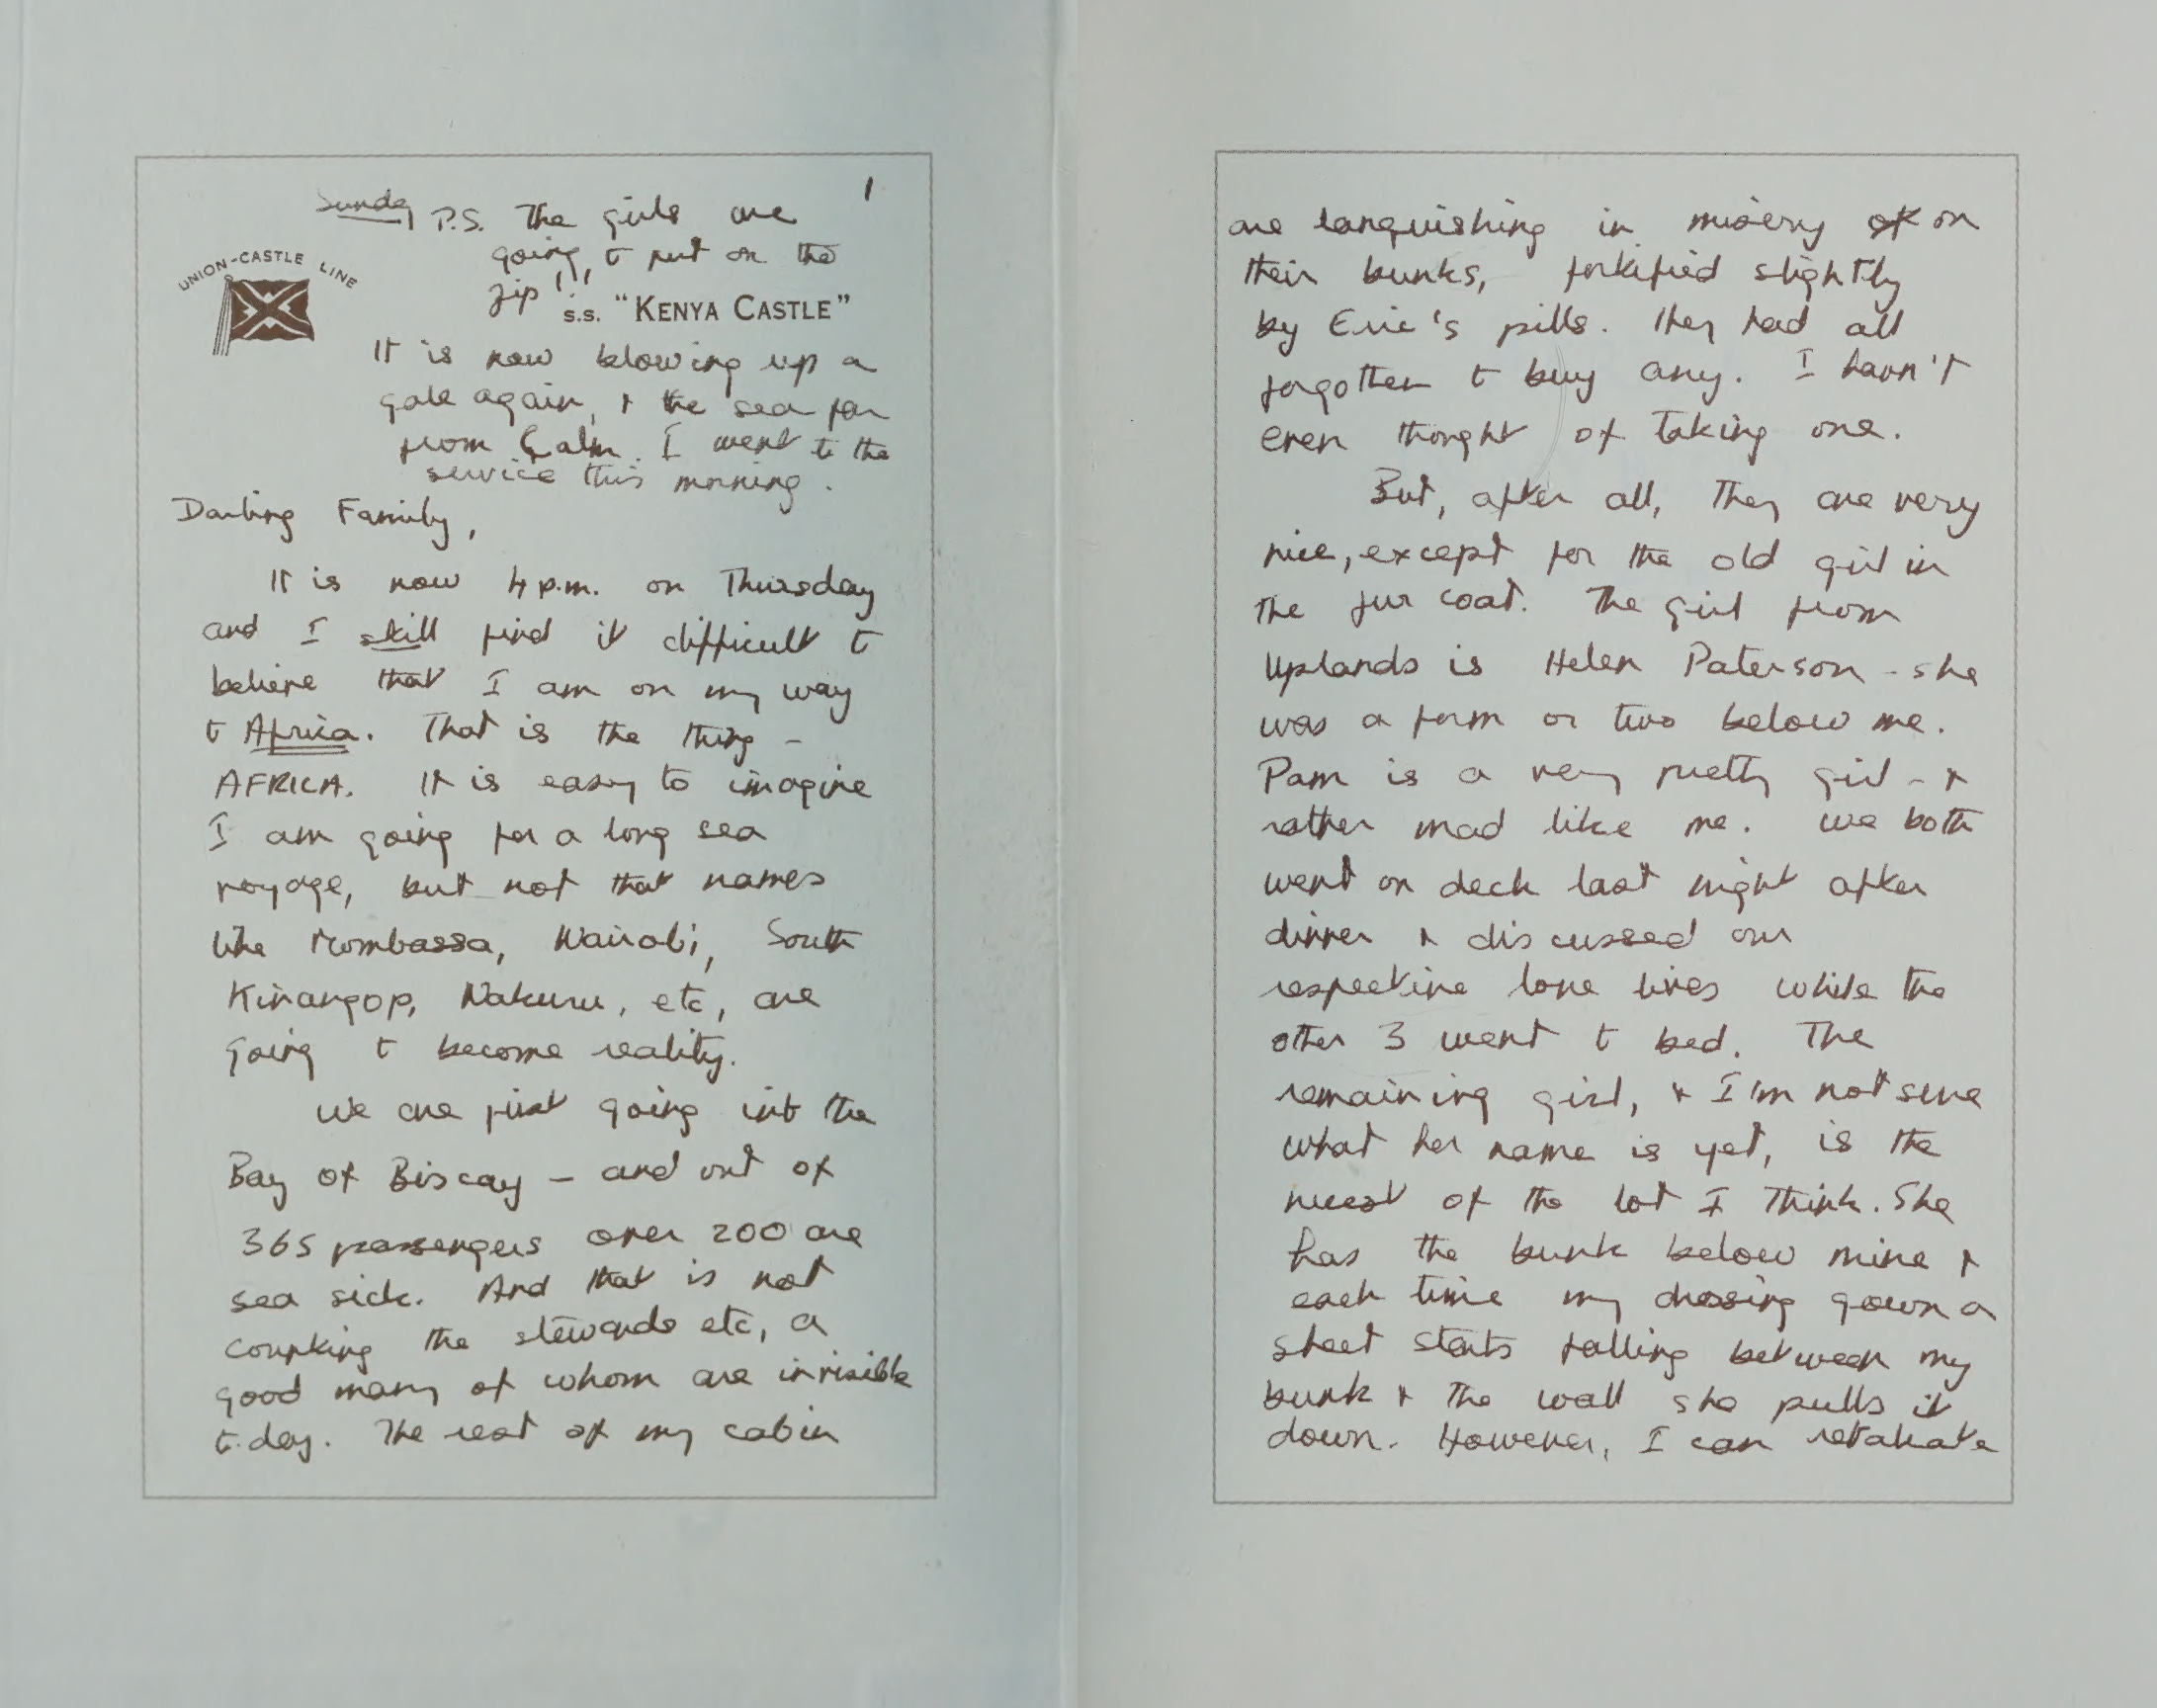 1
Sunday P.S. The girls are
going to put on the
zip!!!
UNION-CASTLE LINE
S.S. "KENYA CASTLE"
It is now blowing up a
gale again, & the sea far
from calm. I went to the
service this morning.
Darling Family,
It is now 4 p.m. on Thursday
and I still find it difficult to
believe that I am on my way
to Africa. That is the thing -
AFRICA. It is easy to imagine
I am going for a long sea
voyage, but not that names
like Mombassa, Nairobi, South
Kinangop, Nakuru, etc, are
going to become reality.
We are just going into the
Bay of Biscay - and out of
365 passengers over 200 are
sea sick. And that is not
counting the stewards etc, a
good many of whom are invisible
to-day. The rest of my cabin
are languishing in misery on
their bunks, fortified slightly
by Eric's pills. They had all
forgotten to buy any. I havn't
even thought of taking one.
But, after all, they are very
nice, except for the old girl in
the fur coat. The girl from
Uplands is Helen Paterson - she
was a form or two below me.
Pam is a very pretty girl - &
rather mad like me. We both
went on deck last night after
dinner & discussed our
respective love lives while the
other 3 went to bed. The
remaining girl, & I'm not sure
what her name is yet, is the
nicest of the lot I think. She
has the bunk below mine &
each time my dressing gown or
sheet starts falling between my
bunk & the wall she pulls it
down. However, I can retaliate